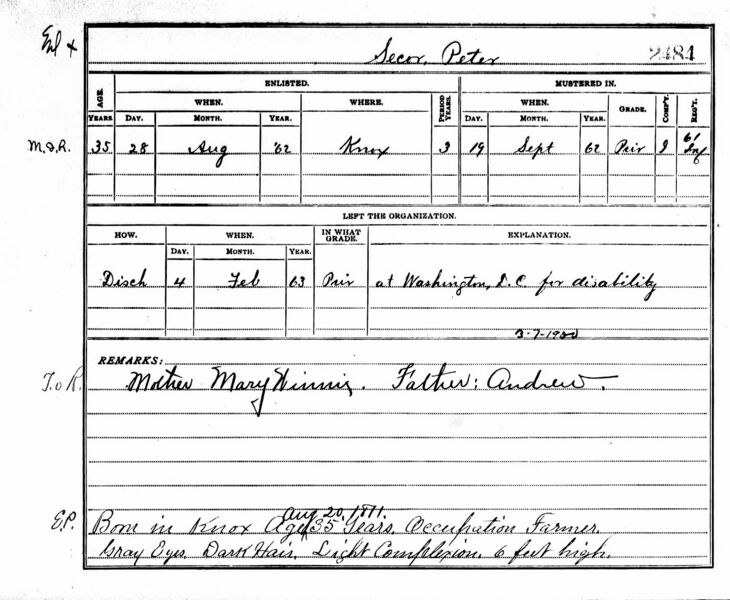 Enl +
Secor, Peter 2484
ENLISTED. MUSTERED IN.
AGE. WHEN. WHERE. PERIOD YEARS. WHEN. GRADE. COMP'Y. REG'T.
YEARS. DAY. MONTH. YEAR. DAY. MONTH. YEAR.
M.&R. 35 28 Aug '62 Knox 3 19 Sept 62 Priv I 61 Inf
LEFT THE ORGANIZATION.
HOW. WHEN. IN WHAT GRADE. EXPLANATION.
DAY. MONTH. YEAR.
Disch 4 Feb 63 Priv at Washington, D.C. for disability
REMARKS:
T. of R. Mother Mary Winnie. Father: Andrew.
Aug 20, 1811.
E.P. Born in Knox Age 35 Years. Occupation Farmer.
Gray Eyes. Dark Hair. Light Complexion. 6 feet high.